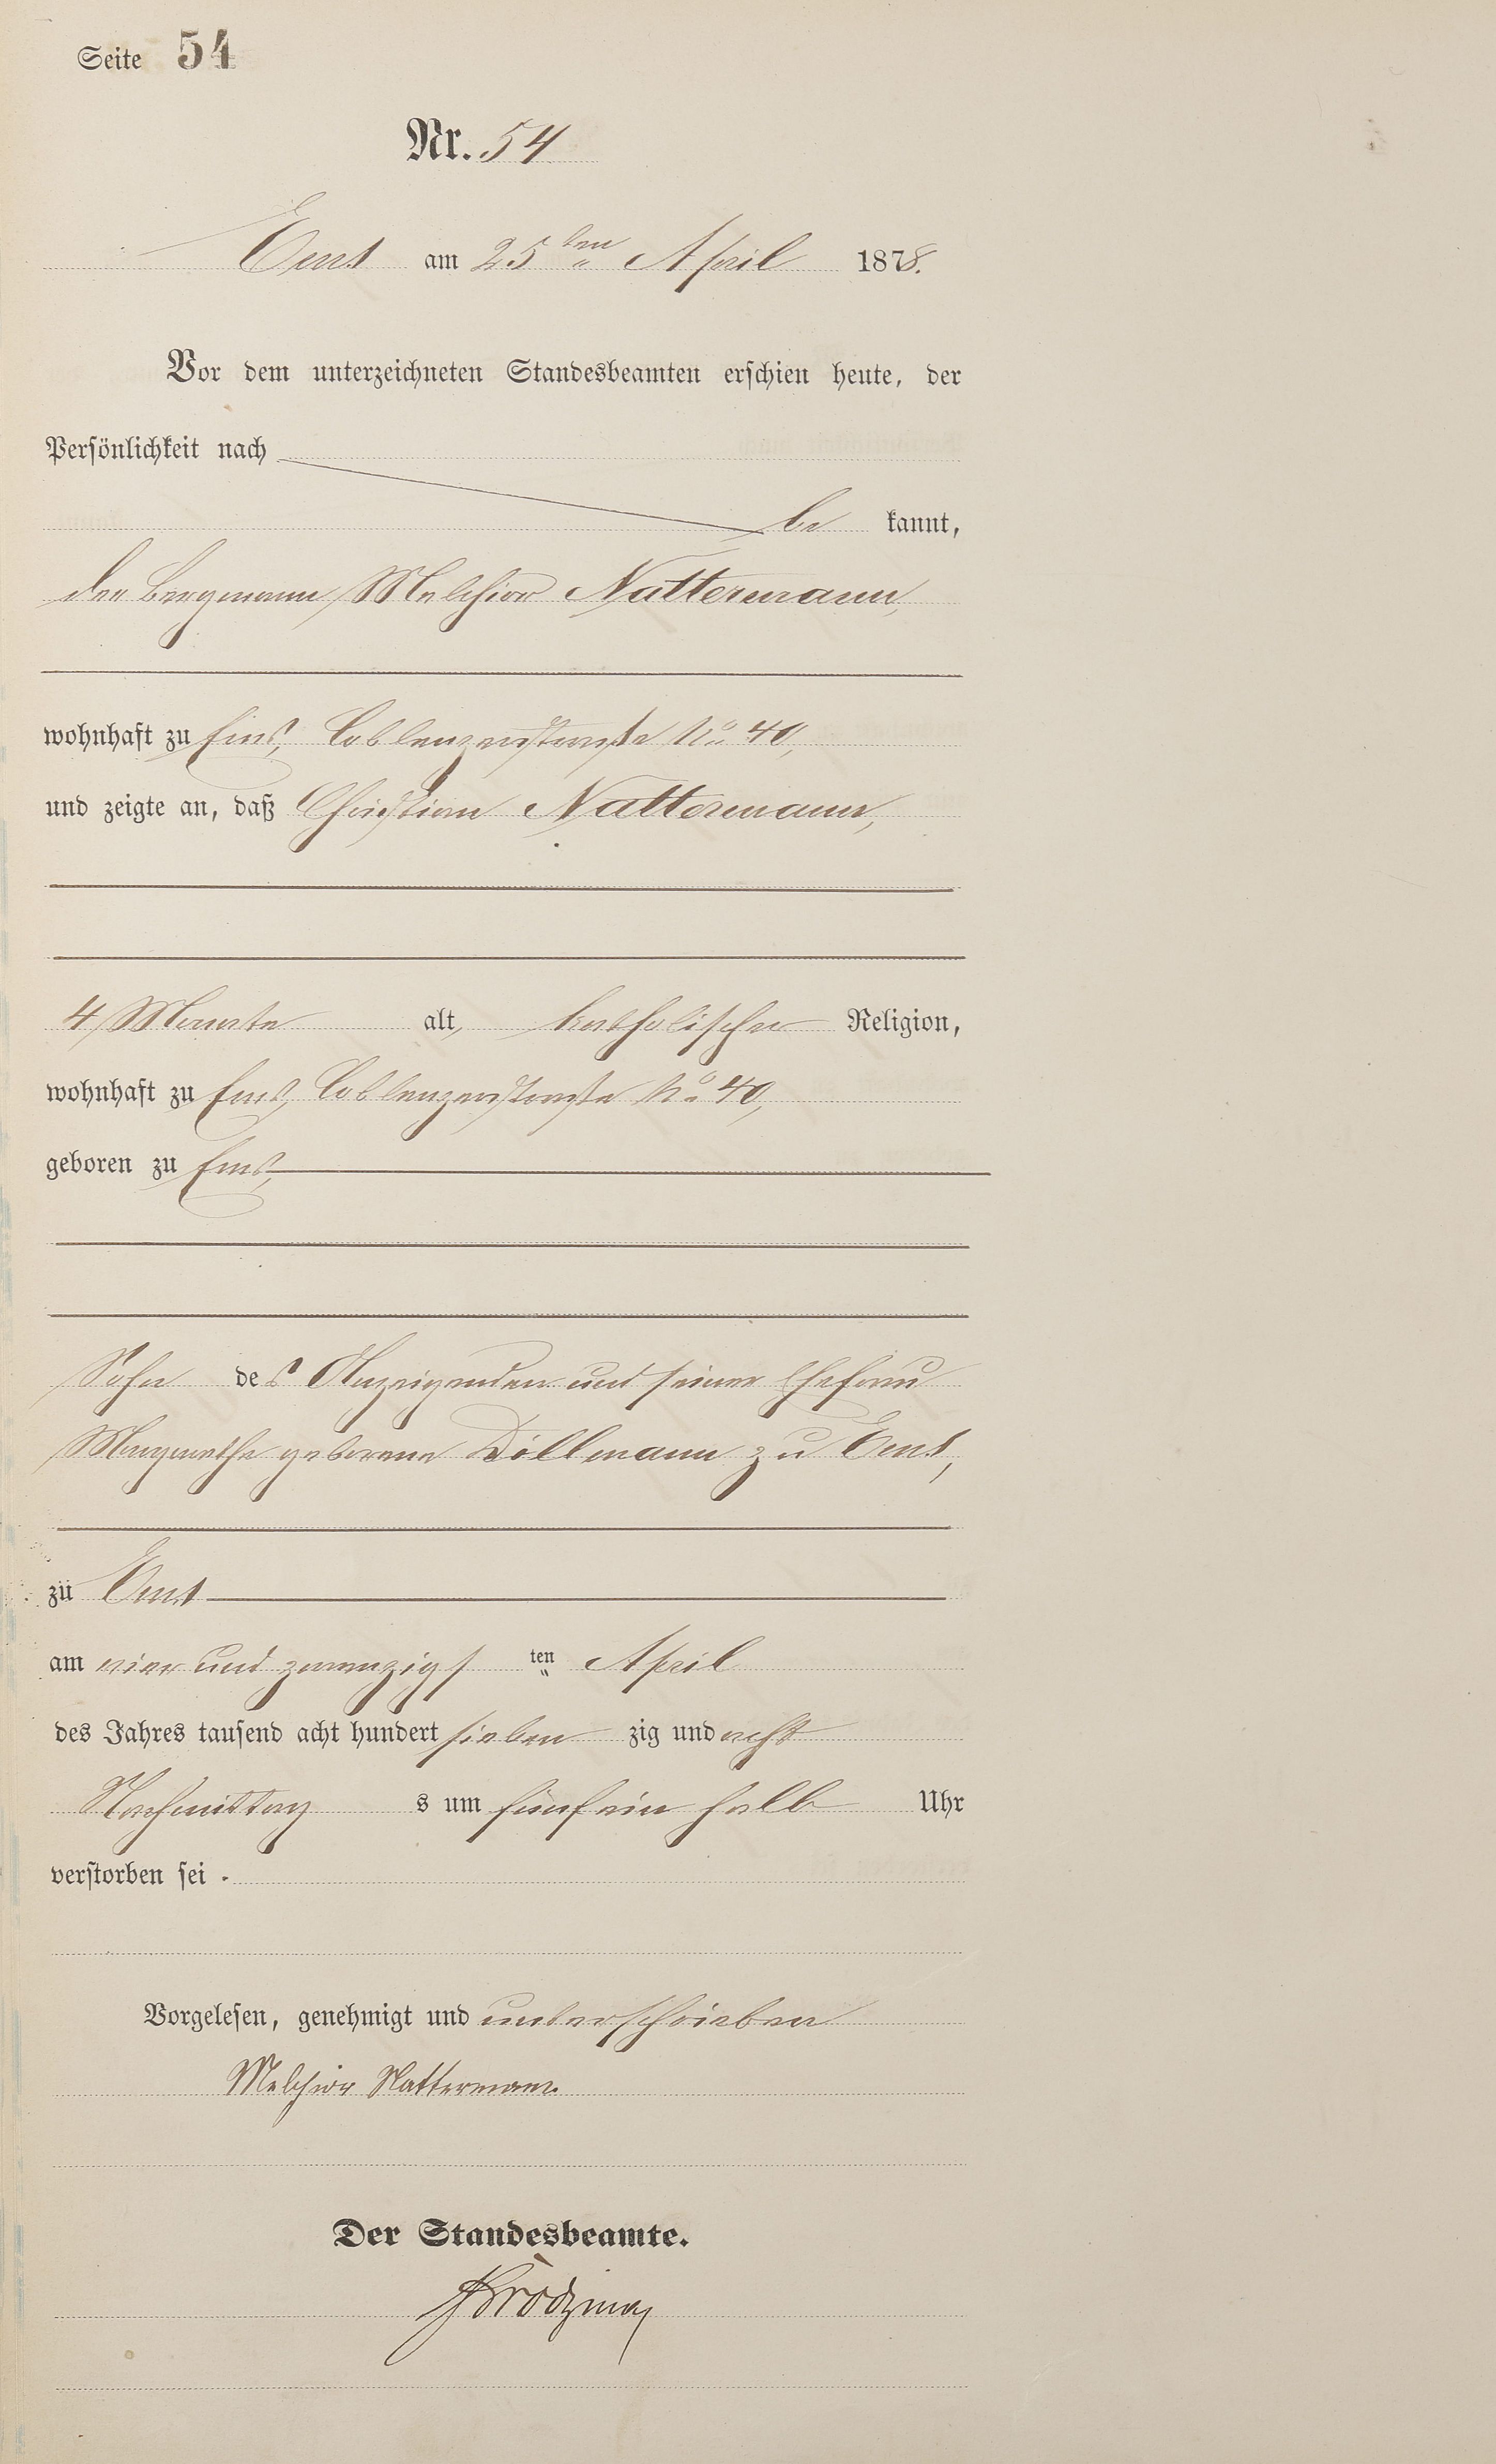 Seite 54
Nr. 54
Ems am 25ten April 1878.
Vor dem unterzeichneten Standesbeamten erschien heute, der
Persönlichkeit nach
be kannt,
der Bergmann Melchior Nattermann,
wohnhaft zu Ems, Coblenzerstraße No 40,
und zeigte an, daß Christian Nattermann,
4 Monate alt, katholischer Religion,
wohnhaft zu Ems, Coblenzerstraße No 40,
geboren zu Ems,
Sohn des Anzeigenden und seiner Ehefrau
Margarethe geborene Döllmann zu Ems,
zu Ems
am vier und zwanzigs ten April
des Jahres tausend acht hundert sieben zig und acht
Nachmittag s um fünf ein halb Uhr
verstorben sei.
Vorgelesen, genehmigt und unterschrieben
Melchior Nattermann
Der Standesbeamte.